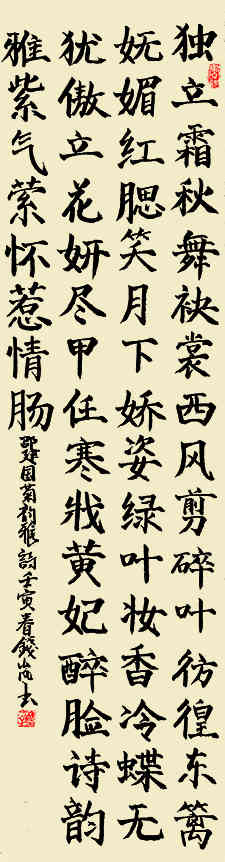 独立霜秋舞袂裳西风剪碎叶彷徨东篱
妩媚红腮笑月下娇姿绿叶妆香冷蝶无
犹傲立花妍尽甲任寒戕黄妃醉脸诗韵
雅紫气萦怀惹情肠
邵建国菊韵雅韵壬寅春钱尚书